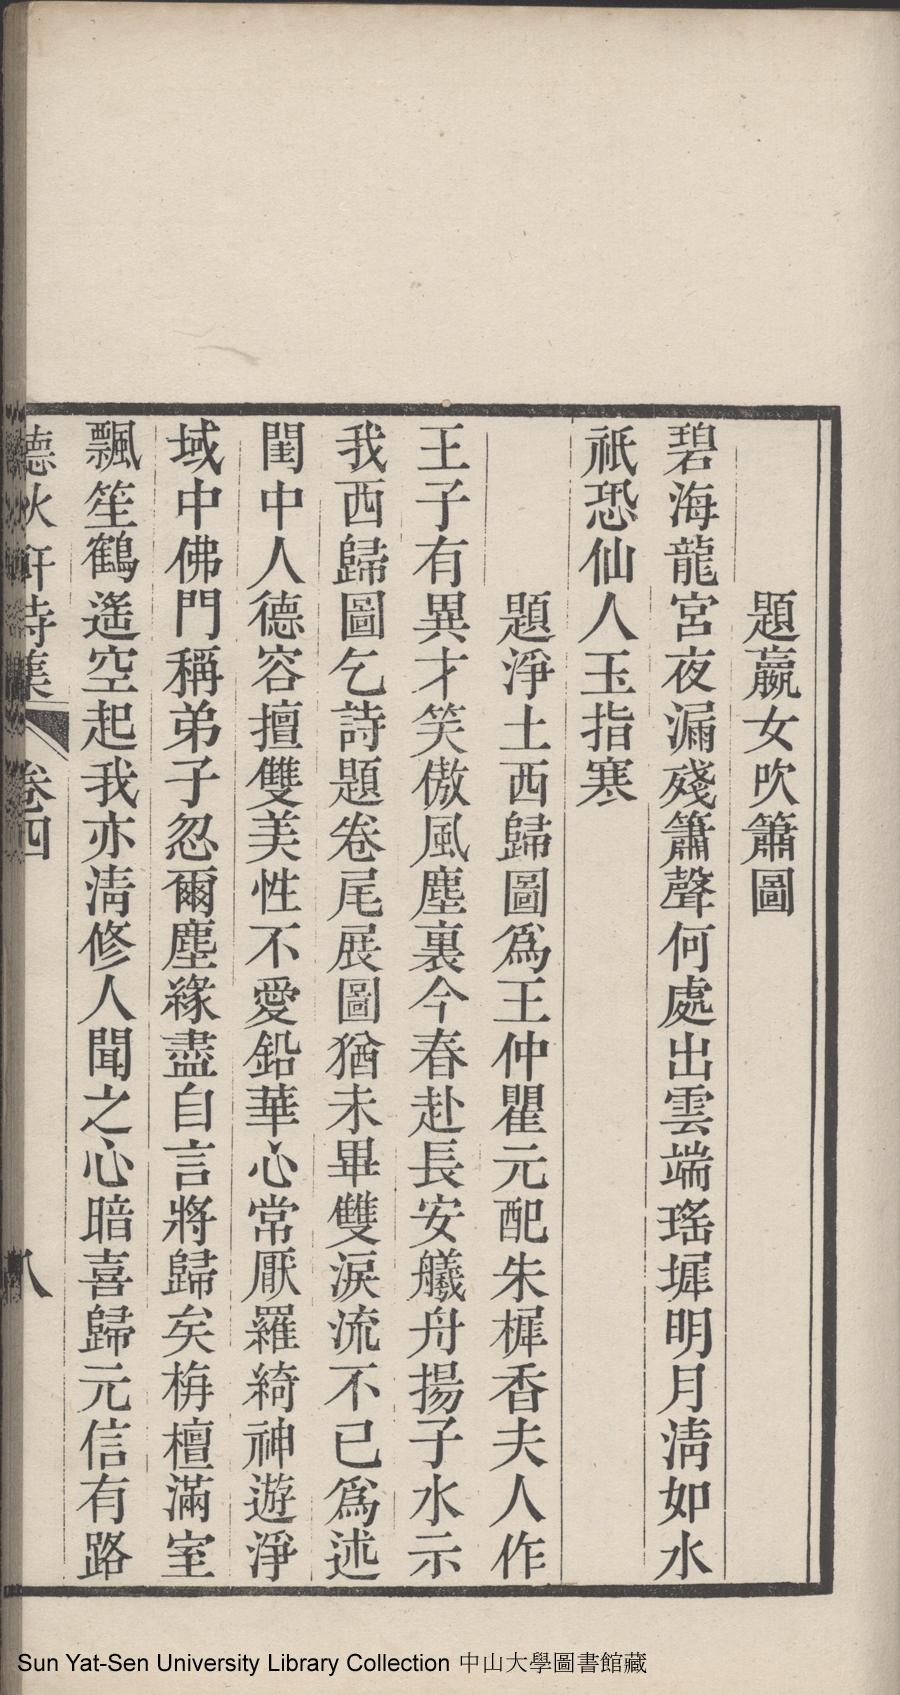 題嬴女吹簫圖
碧海龍宮夜漏殘簫聲何處出雲端瑤墀明月淸如水
祇恐仙人玉指寒
題淨土西歸圖爲王仲瞿元配朱樨香夫人作
王子有異才笑傲風塵裏今春赴長安艤舟揚子水示
我西歸圖乞詩題卷尾展圖猶未畢雙淚流不已爲述
閨中人德容擅雙美性不愛鉛華心常厭羅綺神遊淨
域中佛門稱弟子忽爾塵緣盡自言將歸矣栴檀滿室
飄笙鶴遙空起我亦淸修人聞之心暗喜歸元信有路
德水軒詩集 卷四 八
Sun Yat-Sen University Library Collection 中山大學圖書館藏